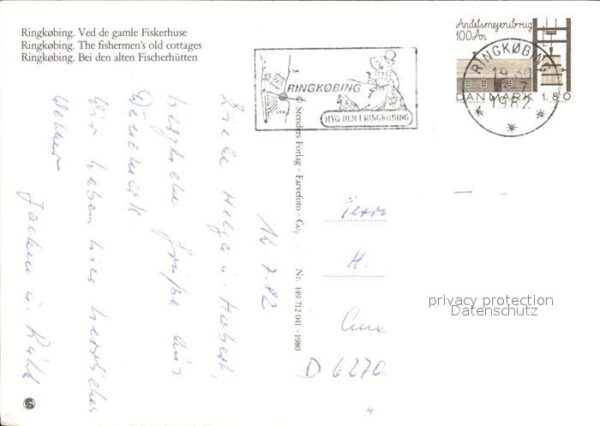 Ringkøbing. Ved de gamle Fiskerhuse
Ringkøbing. The fishermen's old cottages
Ringkøbing. Bei den alten Fischerhütten
RINGKØBING
HYG DEM I RINGKØBING
Andelsmejeribrug
100 År
DANMARK 1.80
RINGKØBING
1982
Stenders Forlag - Farvefoto - Nr. 149 712 041 - 1980
16.7.82
Liebe Helga u. Hubert,
herzliche Grüße aus
Dänemark.
Wir haben hier herrliches
Wetter
Jochen u.
Herrn
H.
D 6270
privacy protection
Datenschutz